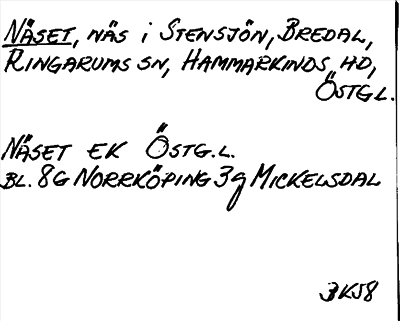 NÄSET, NÄS i STENSJÖN, BREDAL,
RINGARUMS SN, HAMMARKINDS HD,
ÖSTGL.
NÄSET EK ÖSTG.L.
BL. 8G NORRKÖPING 3g MICKELSDAL
3K58